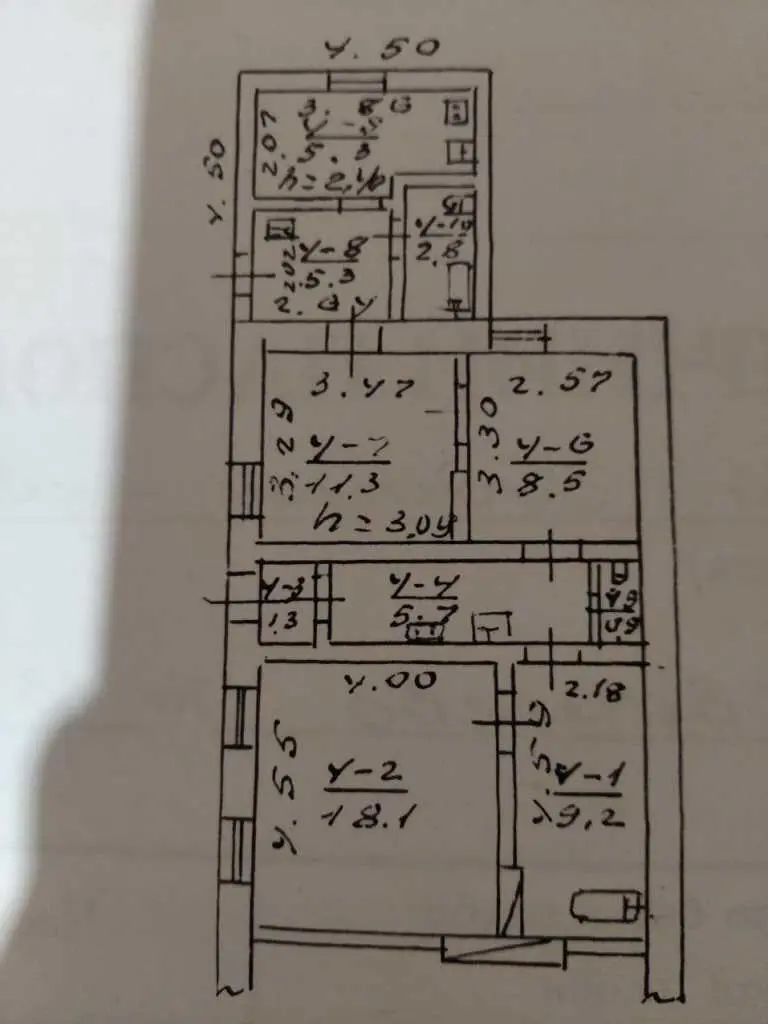 4.50
3.86
2.07
4-9
5.3
h=2.14
4.50
4-8
5.3
2.02
2.64
4-10
2.8
3.47
3.29
4-7
11.3
h=3.04
2.57
3.30
4-6
8.5
4-3
1.3
4-4
5.7
4-5
0.9
4.00
4.55
4-2
18.1
2.18
4.59
4-1
9.2